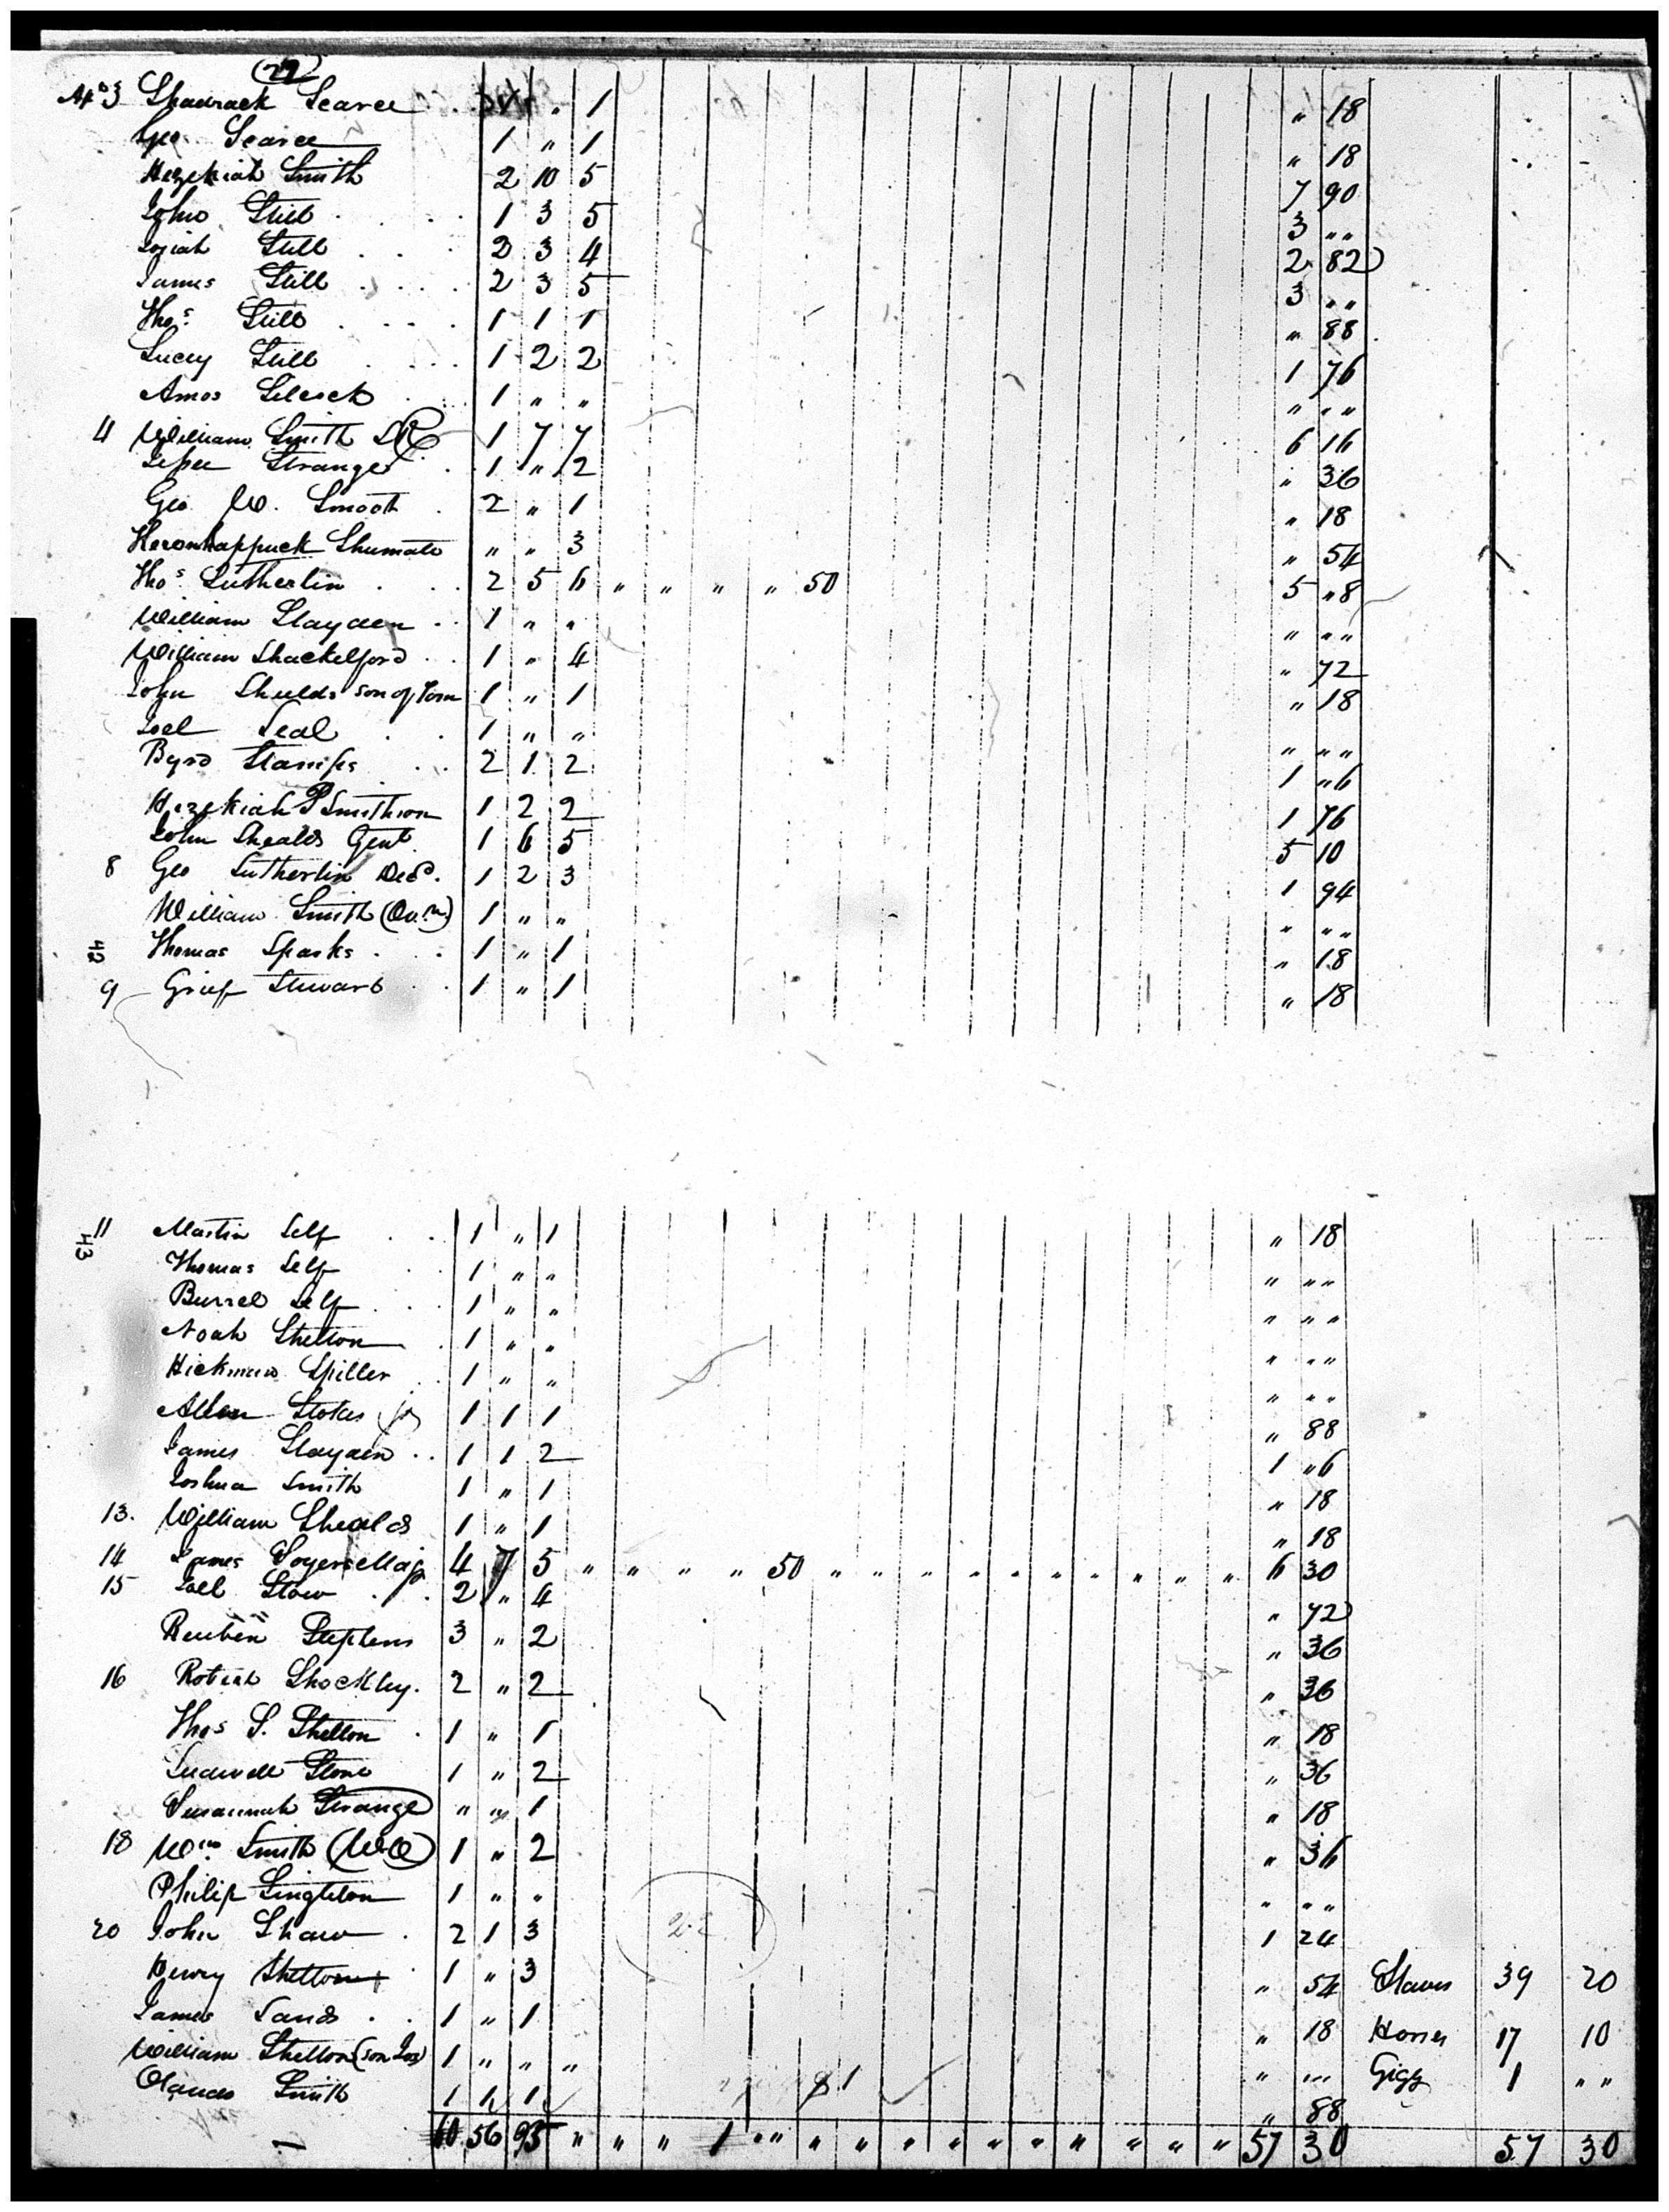 (22)
Ap 3 Shadrack Scarce 1 " 1 " 18
Geo. Scarce 1 " 1 " 18
Hezekiah Smith 2 10 5 7 90
John Still 1 3 5 3 " "
Josiah Still 2 3 4 2 82
James Still 2 3 5 3 " "
Thos. Still 1 1 1 " 88
Lucey Still 1 2 2 1 76
Amos 1 " " " " "
4 William Smith 1 7 7 6 16
Strange 1 " 2 " 36
Geo. W. Smoot 2 " 1 " 18
Shumate " " 3 " 54
Thos. Sutherlin 2 5 6 " " " " 50 5 " 8
William Slayden 1 " " " " "
William Shackelford 1 " 4 " 72
John Sheilds son of Tom 1 " 1 " 18
Joel Seal 1 " " " " "
Byrd Stamps 2 1 2 1 " 6
Hezekiah P Smithson 1 2 2 1 76
John Shealds Gent. 1 6 5 5 10
8 Geo Sutherlin Decd. 1 2 3 1 94
William Smith 1 " " " " "
42 Thomas Sparks 1 " 1 " 18
9 Grief Stewart 1 " 1 " 18
11 Martin Self 1 " 1 " 18
43 Thomas Self 1 " " " " "
Burrel Self 1 " " " " "
Noah Shelton 1 " " " " "
Hickman Spiller 1 " " " " "
Allen Stokes jr 1 1 1 " 88
James Slayden 1 1 2 1 " 6
Joshua Smith 1 " 1 " 18
13. William Shealds 1 " 1 " 18
14 James Soyers Maj 4 7 5 " " " " 50 " " " " " " " " " " 6 30
15 Joel Stow 2 " 4 " 72
Reuben Stephens 3 " 2 " 36
16 Robert Shockley. 2 " 2 " 36
Thos S. Shelton 1 " 1 " 18
Ludwell Stone 1 " 2 " 36
Susannah Strange " " 1 " 18
18 Wm. Smith 1 " 2 " 36
Philip Singleton 1 " " " " "
20 John Shaw 2 1 3 1 24
Henry Shelton 1 " 3 " 54 Slaves 39 20
James Sands 1 " 1 " 18 Horses 17 10
William Shelton (son Jos) 1 " " " " " " Gigg 1 " "
Smith 1 1 1 " 88
60 56 95 " " " 1 " " " " " " " " " " " " 57 30 57 30